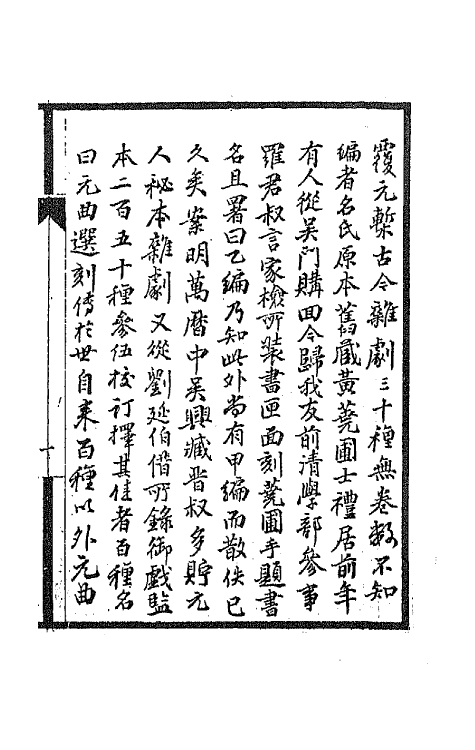 覆元槧古今雜劇三十種無卷數不知
編者名氏原本舊藏黃蕘圃士禮居前年
有人從吳門購回今歸我友前清學部參事
羅君叔言家檢所裝書匣面刻蕘圃手題書
名且署曰乙編乃知此外尚有甲編而散佚已
久矣案明萬曆中吳興臧晉叔多貯元
人秘本雜劇又從劉延伯借所錄御戲監
本二百五十種參伍校訂擇其佳者百種名
曰元曲選刻傳於世自來百種以外元曲
一